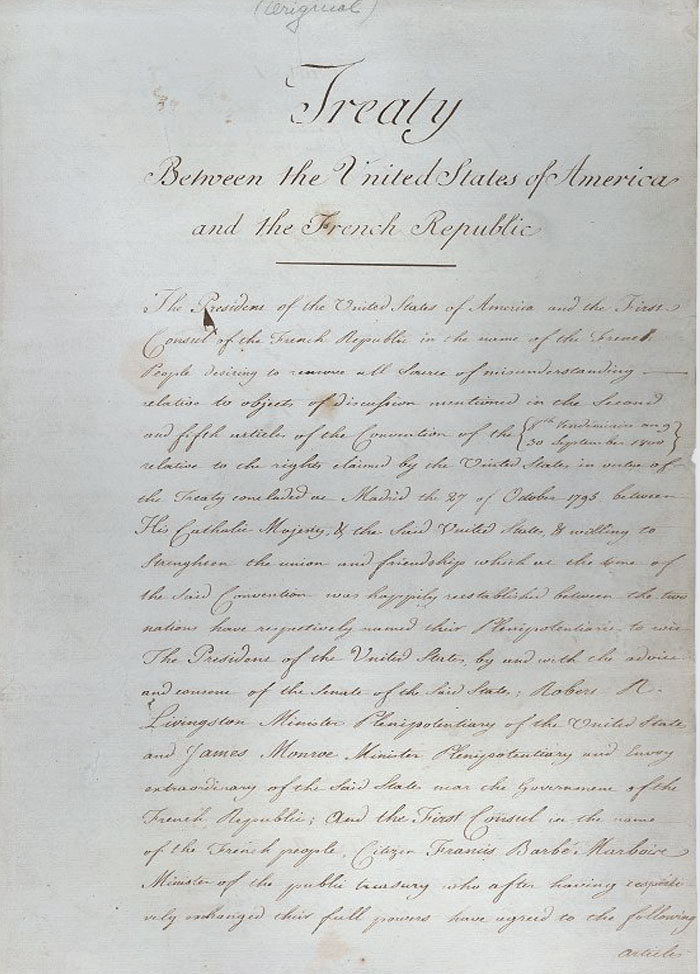 (Original)
Treaty
Between the United States of America
and the French Republic
The President of the United States of America and the First
Consul of the French Republic in the name of the French
People desiring to remove all Source of misunderstanding
relative to objects of discussion mentioned in the Second
and fifth articles of the Convention of the {8th Vendémiaire an 9
30 September 1800}
relative to the rights claimed by the United States in virtue of
the Treaty concluded at Madrid the 27 of October 1795 between
His Catholic Majesty, & the Said United States, & willing to
Strengthen the union and friendship which at the time of
the Said Convention was happily reestablished between the two
nations have respectively named their Plenipotentiaries to wit
The President of the United States, by and with the advice
and consent of the Senate of the Said States; Robert R.
Livingston Minister Plenipotentiary of the United States
and James Monroe Minister Plenipotentiary and Envoy
extraordinary of the Said States near the Government of the
French Republic; And the First Consul in the name
of the French people, Citizen Francis Barbé Marbois
Minister of the public treasury who after having respecti-
vely exchanged their full powers have agreed to the following
articles